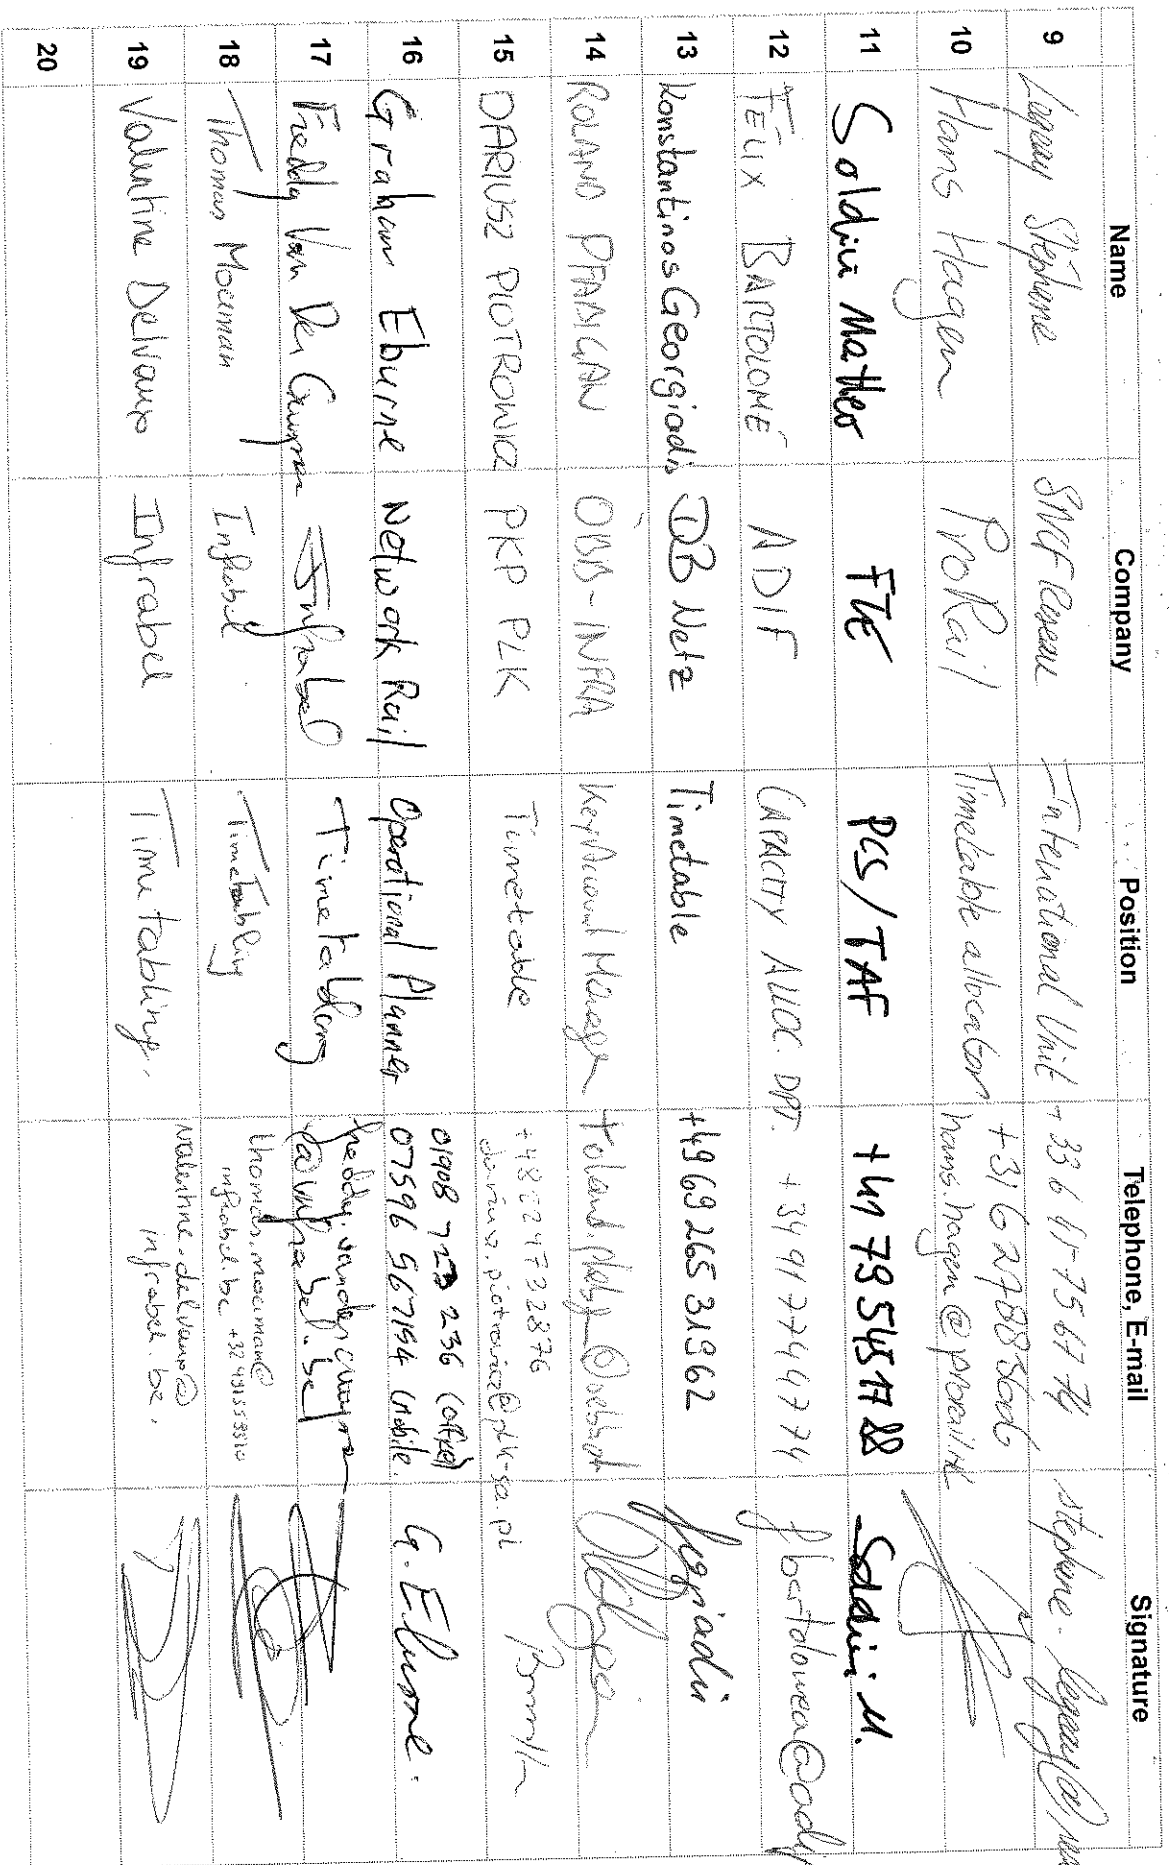 Name Company Position Telephone, E-mail Signature
9 Legeay Stéphane SNCF Réseau International Unit +33 6 15 75 67 74 stephane.legeay@
10 Hans Hagen ProRail Timetable allocator +31 6 27883606
hans.hagen@prorail.nl
11 Soldini Matteo FTE PCS/TAF +41 79 545 17 88 Soldini M.
12 FÉLIX BARTOLOMÉ ADIF CAPACITY ALLOC. DPT. +34 917749774 fbartolomea@adif
13 Konstantinos Georgiadis DB Netz Timetable +49 69 265 31962
14 ROLAND PFABIGAN ÖBB-INFRA Key Account Manager
15 DARIUSZ PIOTROWICZ PKP PLK Timetable +48224732876
dariusz.piotrowicz@plk-sa.pl
16 Graham Eburne Network Rail Operational Planner 01908 723 236 (office)
07596 567194 (mobile. G. Eburne.
17 Freddy Van Der Cruyssen Infrabel Timetabling freddy.vandercruyssen
@infrabel.be
18 Thomas Moerman Infrabel Timetabling thomas.moerman@
infrabel.be
19 Valentine Delvaux Infrabel Timetabling. valentine.delvaux@
infrabel.be.
20